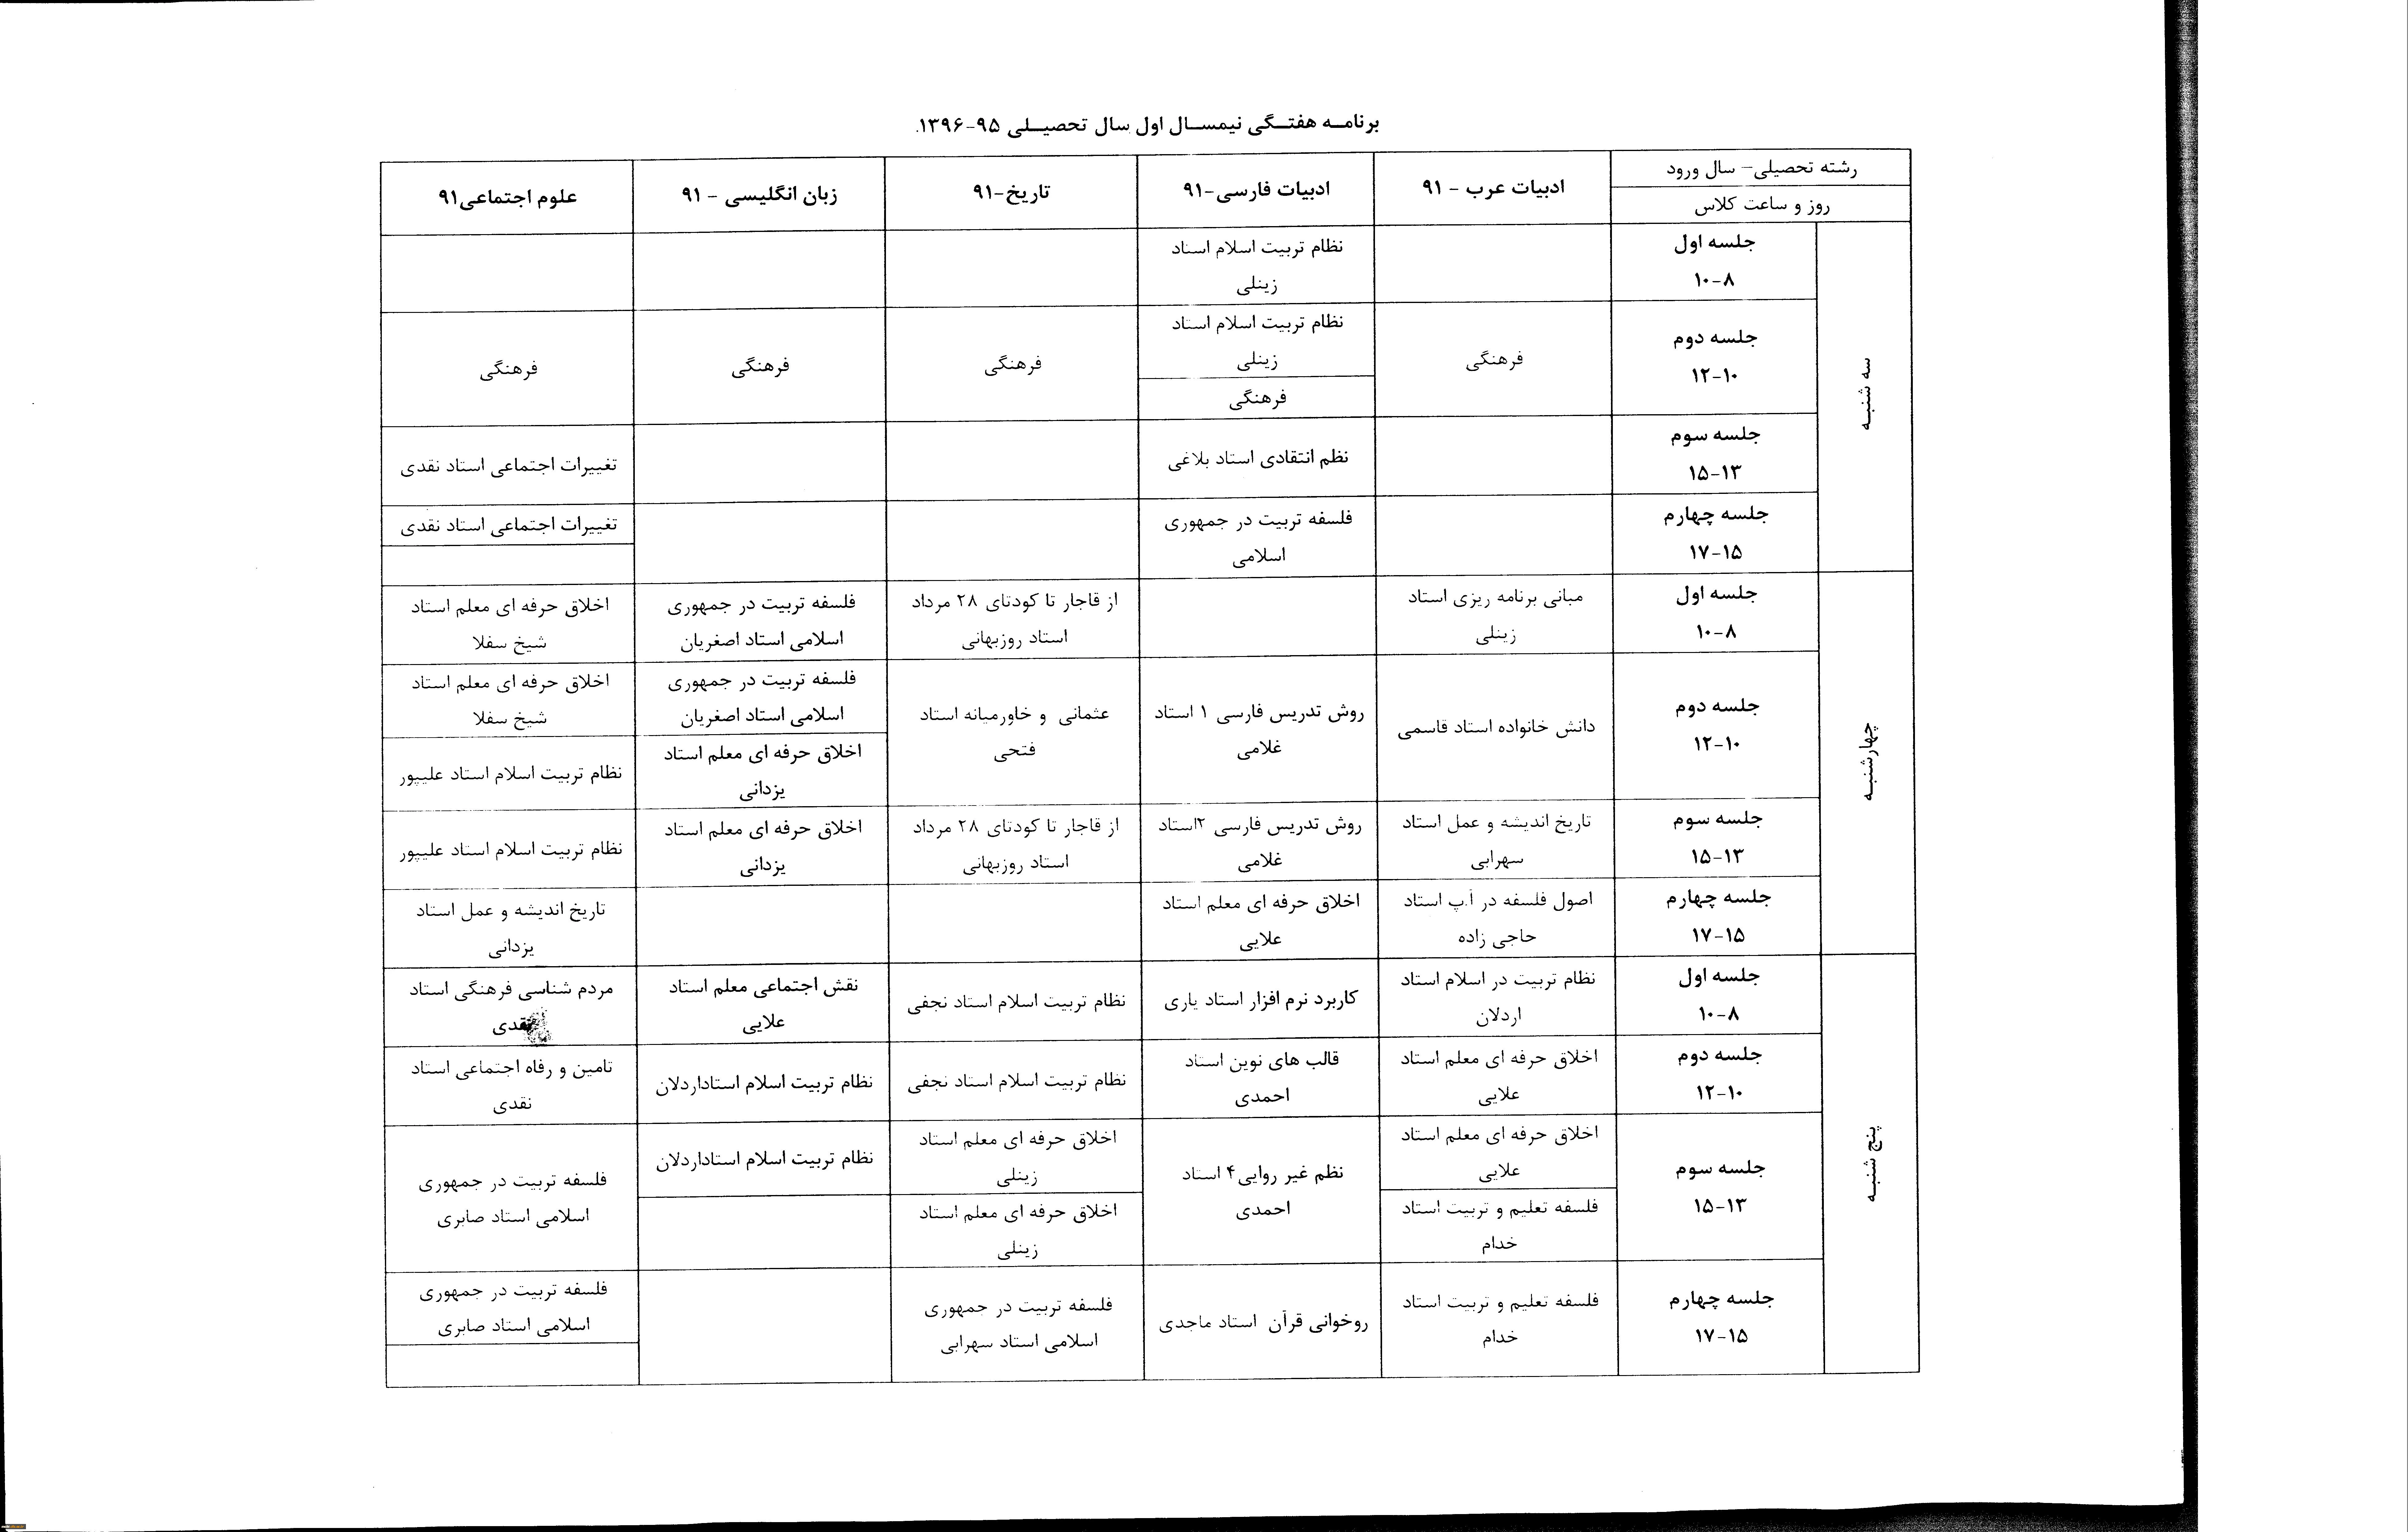 برنامه هفتگی نیمسال اول سال تحصیلی ۹۵-۱۳۹۶.
رشته تحصیلی- سال ورود
روز و ساعت کلاس
ادبیات عرب - ۹۱
ادبیات فارسی-۹۱
تاریخ-۹۱
زبان انگلیسی - ۹۱
علوم اجتماعی۹۱
سه شنبه
جلسه اول
۸-۱۰
نظام تربیت اسلام استاد
زینلی
جلسه دوم
۱۰-۱۲
فرهنگی
نظام تربیت اسلام استاد
زینلی
فرهنگی
فرهنگی
فرهنگی
فرهنگی
جلسه سوم
۱۳-۱۵
نظم انتقادی استاد بلاغی
تغییرات اجتماعی استاد نقدی
جلسه چهارم
۱۵-۱۷
فلسفه تربیت در جمهوری
اسلامی
تغییرات اجتماعی استاد نقدی
چهارشنبه
جلسه اول
۸-۱۰
مبانی برنامه ریزی استاد
زینلی
از قاجار تا کودتای ۲۸ مرداد
استاد روزبهانی
فلسفه تربیت در جمهوری
اسلامی استاد اصغریان
اخلاق حرفه ای معلم استاد
شیخ سفلا
جلسه دوم
۱۰-۱۲
دانش خانواده استاد قاسمی
روش تدریس فارسی ۱ استاد
غلامی
عثمانی و خاورمیانه استاد
فتحی
فلسفه تربیت در جمهوری
اسلامی استاد اصغریان
اخلاق حرفه ای معلم استاد
یزدانی
اخلاق حرفه ای معلم استاد
شیخ سفلا
نظام تربیت اسلام استاد علیپور
جلسه سوم
۱۳-۱۵
تاریخ اندیشه و عمل استاد
سهرابی
روش تدریس فارسی ۲استاد
غلامی
از قاجار تا کودتای ۲۸ مرداد
استاد روزبهانی
اخلاق حرفه ای معلم استاد
یزدانی
نظام تربیت اسلام استاد علیپور
جلسه چهارم
۱۵-۱۷
اصول فلسفه در آ.پ استاد
حاجی زاده
اخلاق حرفه ای معلم استاد
علایی
تاریخ اندیشه و عمل استاد
یزدانی
پنج شنبه
جلسه اول
۸-۱۰
نظام تربیت در اسلام استاد
اردلان
کاربرد نرم افزار استاد یاری
نظام تربیت اسلام استاد نجفی
نقش اجتماعی معلم استاد
علایی
مردم شناسی فرهنگی استاد
نقدی
جلسه دوم
۱۰-۱۲
اخلاق حرفه ای معلم استاد
علایی
قالب های نوین استاد
احمدی
نظام تربیت اسلام استاد نجفی
نظام تربیت اسلام استاداردلان
تامین و رفاه اجتماعی استاد
نقدی
جلسه سوم
۱۳-۱۵
اخلاق حرفه ای معلم استاد
علایی
فلسفه تعلیم و تربیت استاد
خدام
نظم غیر روایی۴ استاد
احمدی
اخلاق حرفه ای معلم استاد
زینلی
اخلاق حرفه ای معلم استاد
زینلی
نظام تربیت اسلام استاداردلان
فلسفه تربیت در جمهوری
اسلامی استاد صابری
جلسه چهارم
۱۵-۱۷
فلسفه تعلیم و تربیت استاد
خدام
روخوانی قرآن استاد ماجدی
فلسفه تربیت در جمهوری
اسلامی استاد سهرابی
فلسفه تربیت در جمهوری
اسلامی استاد صابری